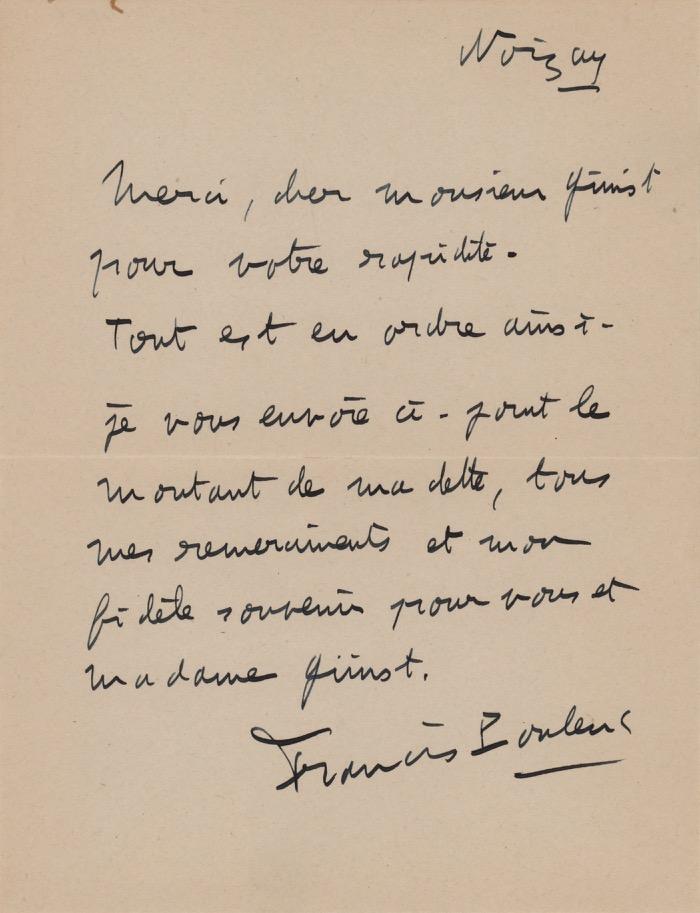 Noizay
Merci, cher monsieur
pour votre rapidité.
Tout est en ordre ainsi.
je vous envoie ci-joint le
montant de ma dette, tous
mes remerciments et mon
fidèle souvenir pour vous et
madame
Francis Poulenc